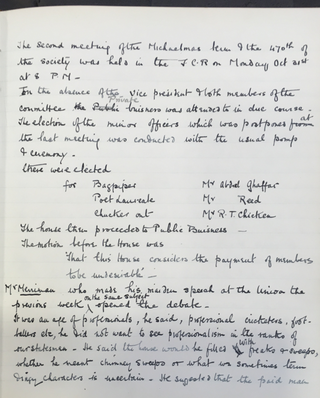 The second meeting of the Michaelmas term & the 470th of
the society was held in the J.C.R on Monday Oct 31st
at 8 P.M -
In the absence of the vice president & both members of the
Private
committee the Public buisness was attended to in due course -
The election of the minor officers which was postponed from
at
the last meeting was conducted with the usual pomp
& ceremony -
There were elected
for Bagpiper Mr Abdel Ghaffar
Poet Laureate Mr Reed
Chucker out Mr R.T. Chicken
The house then proceeded to Public Buisness -
The motion before the House was
That this House considers the payment of members
to be undesirable -
Mr Merriman who made his maiden speech at the Union the
on the same subject
previous week opened the debate -
It was an age of professionals, he said, professional cricketers, foot-
ballers etc, he did not want to see professionalism in the ranks of
our statesmen - He said the house would be filled with freaks & sweeps,
whether he meant chimney sweeps or what we sometimes term
dingy characters is uncertain - He suggested that the paid man